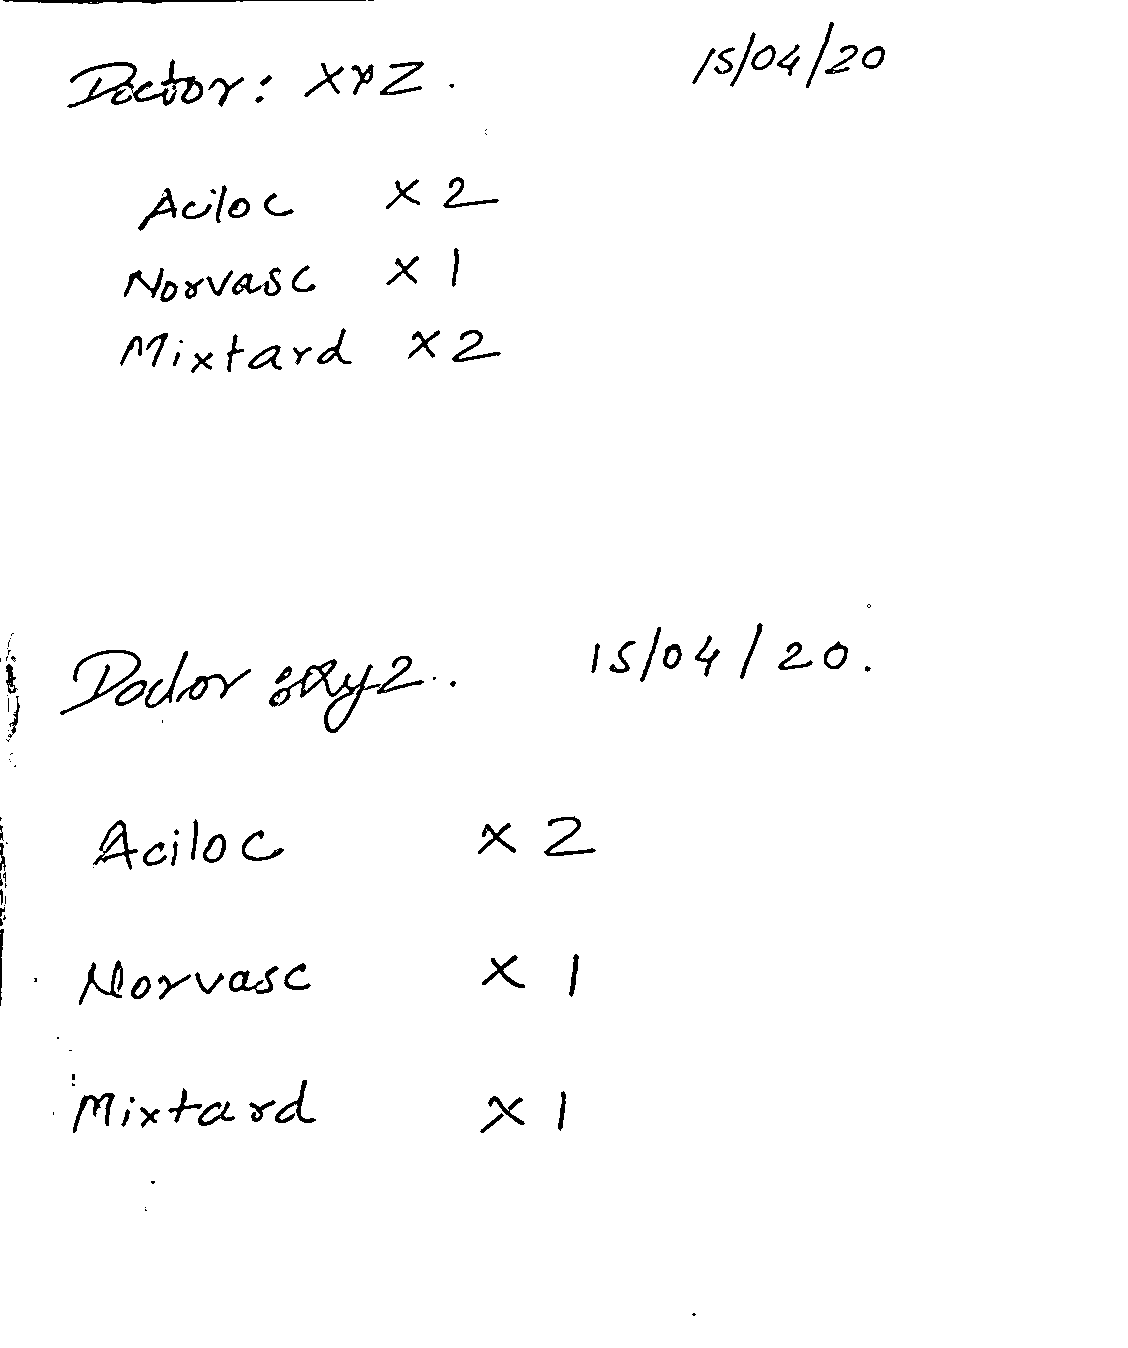 Doctor: XYZ. 15/04/20
Aciloc X 2
Norvasc X 1
Mixtard X 2
Doctor 15/04/20.
Aciloc X 2
Norvasc X 1
Mixtard X 1